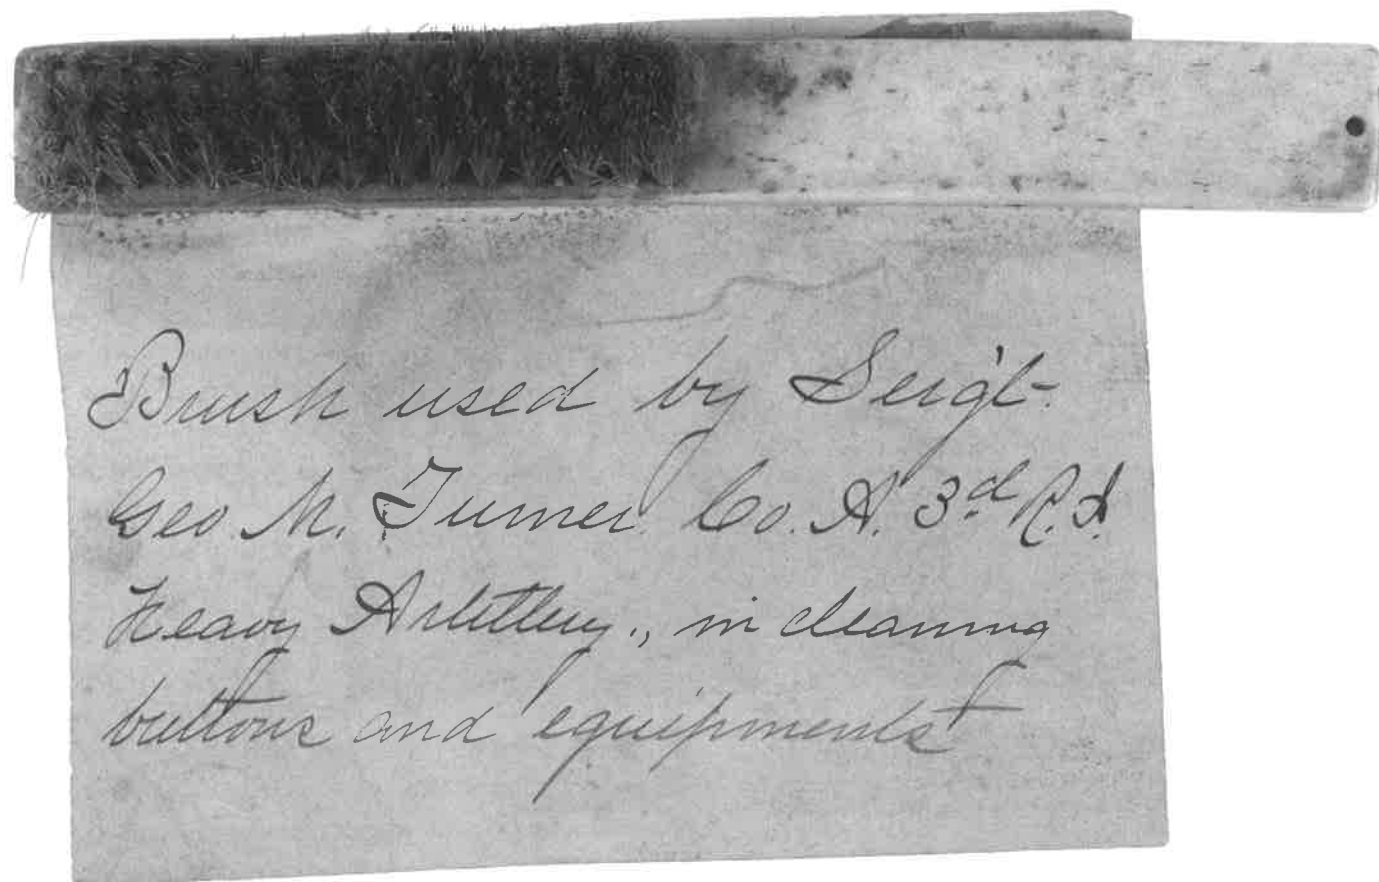 Brush used by Serg't.
Geo M. Turner Co. A. 3d R.I.
Heavy Artillery., in cleaning
buttons and equipments